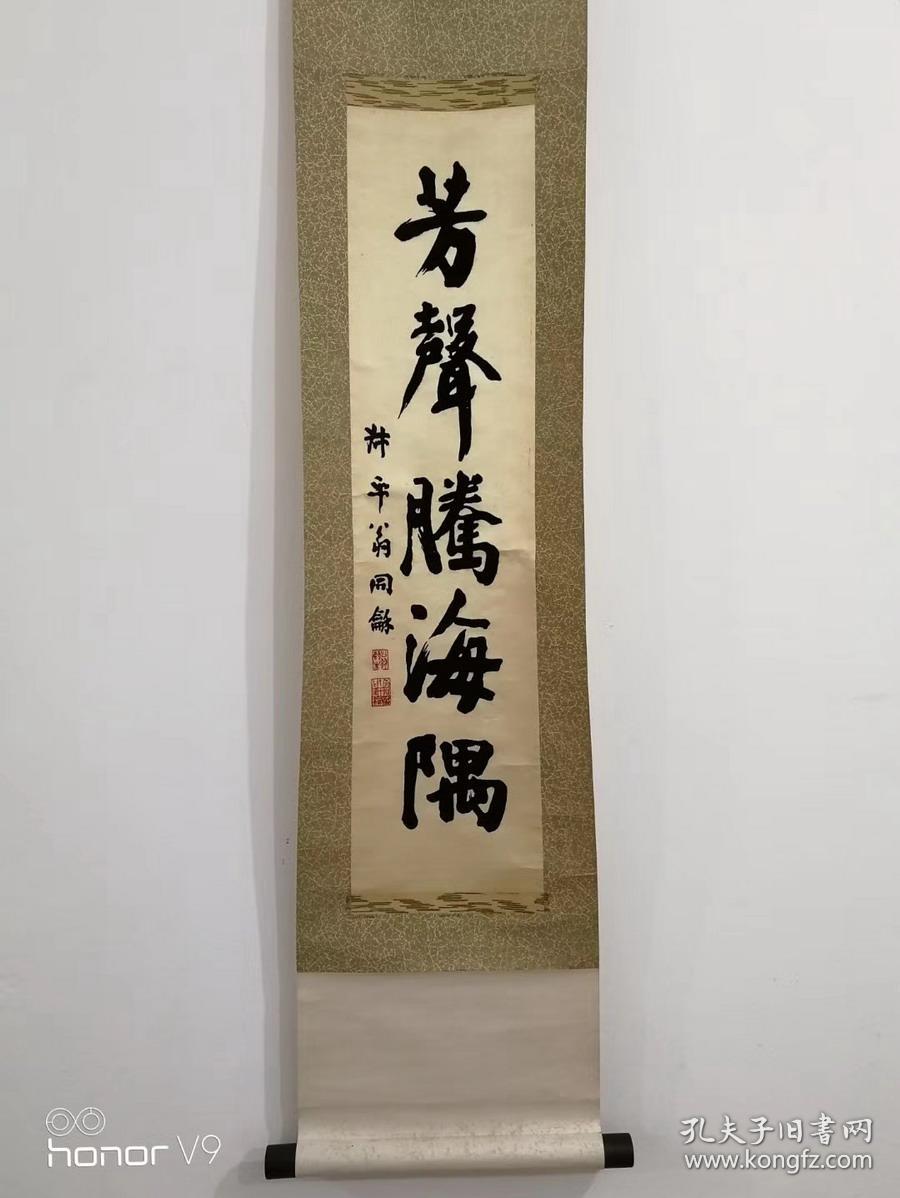 芳聲騰海隅
叔平翁同龢
honor V9
孔夫子旧書网
www.kongfz.com